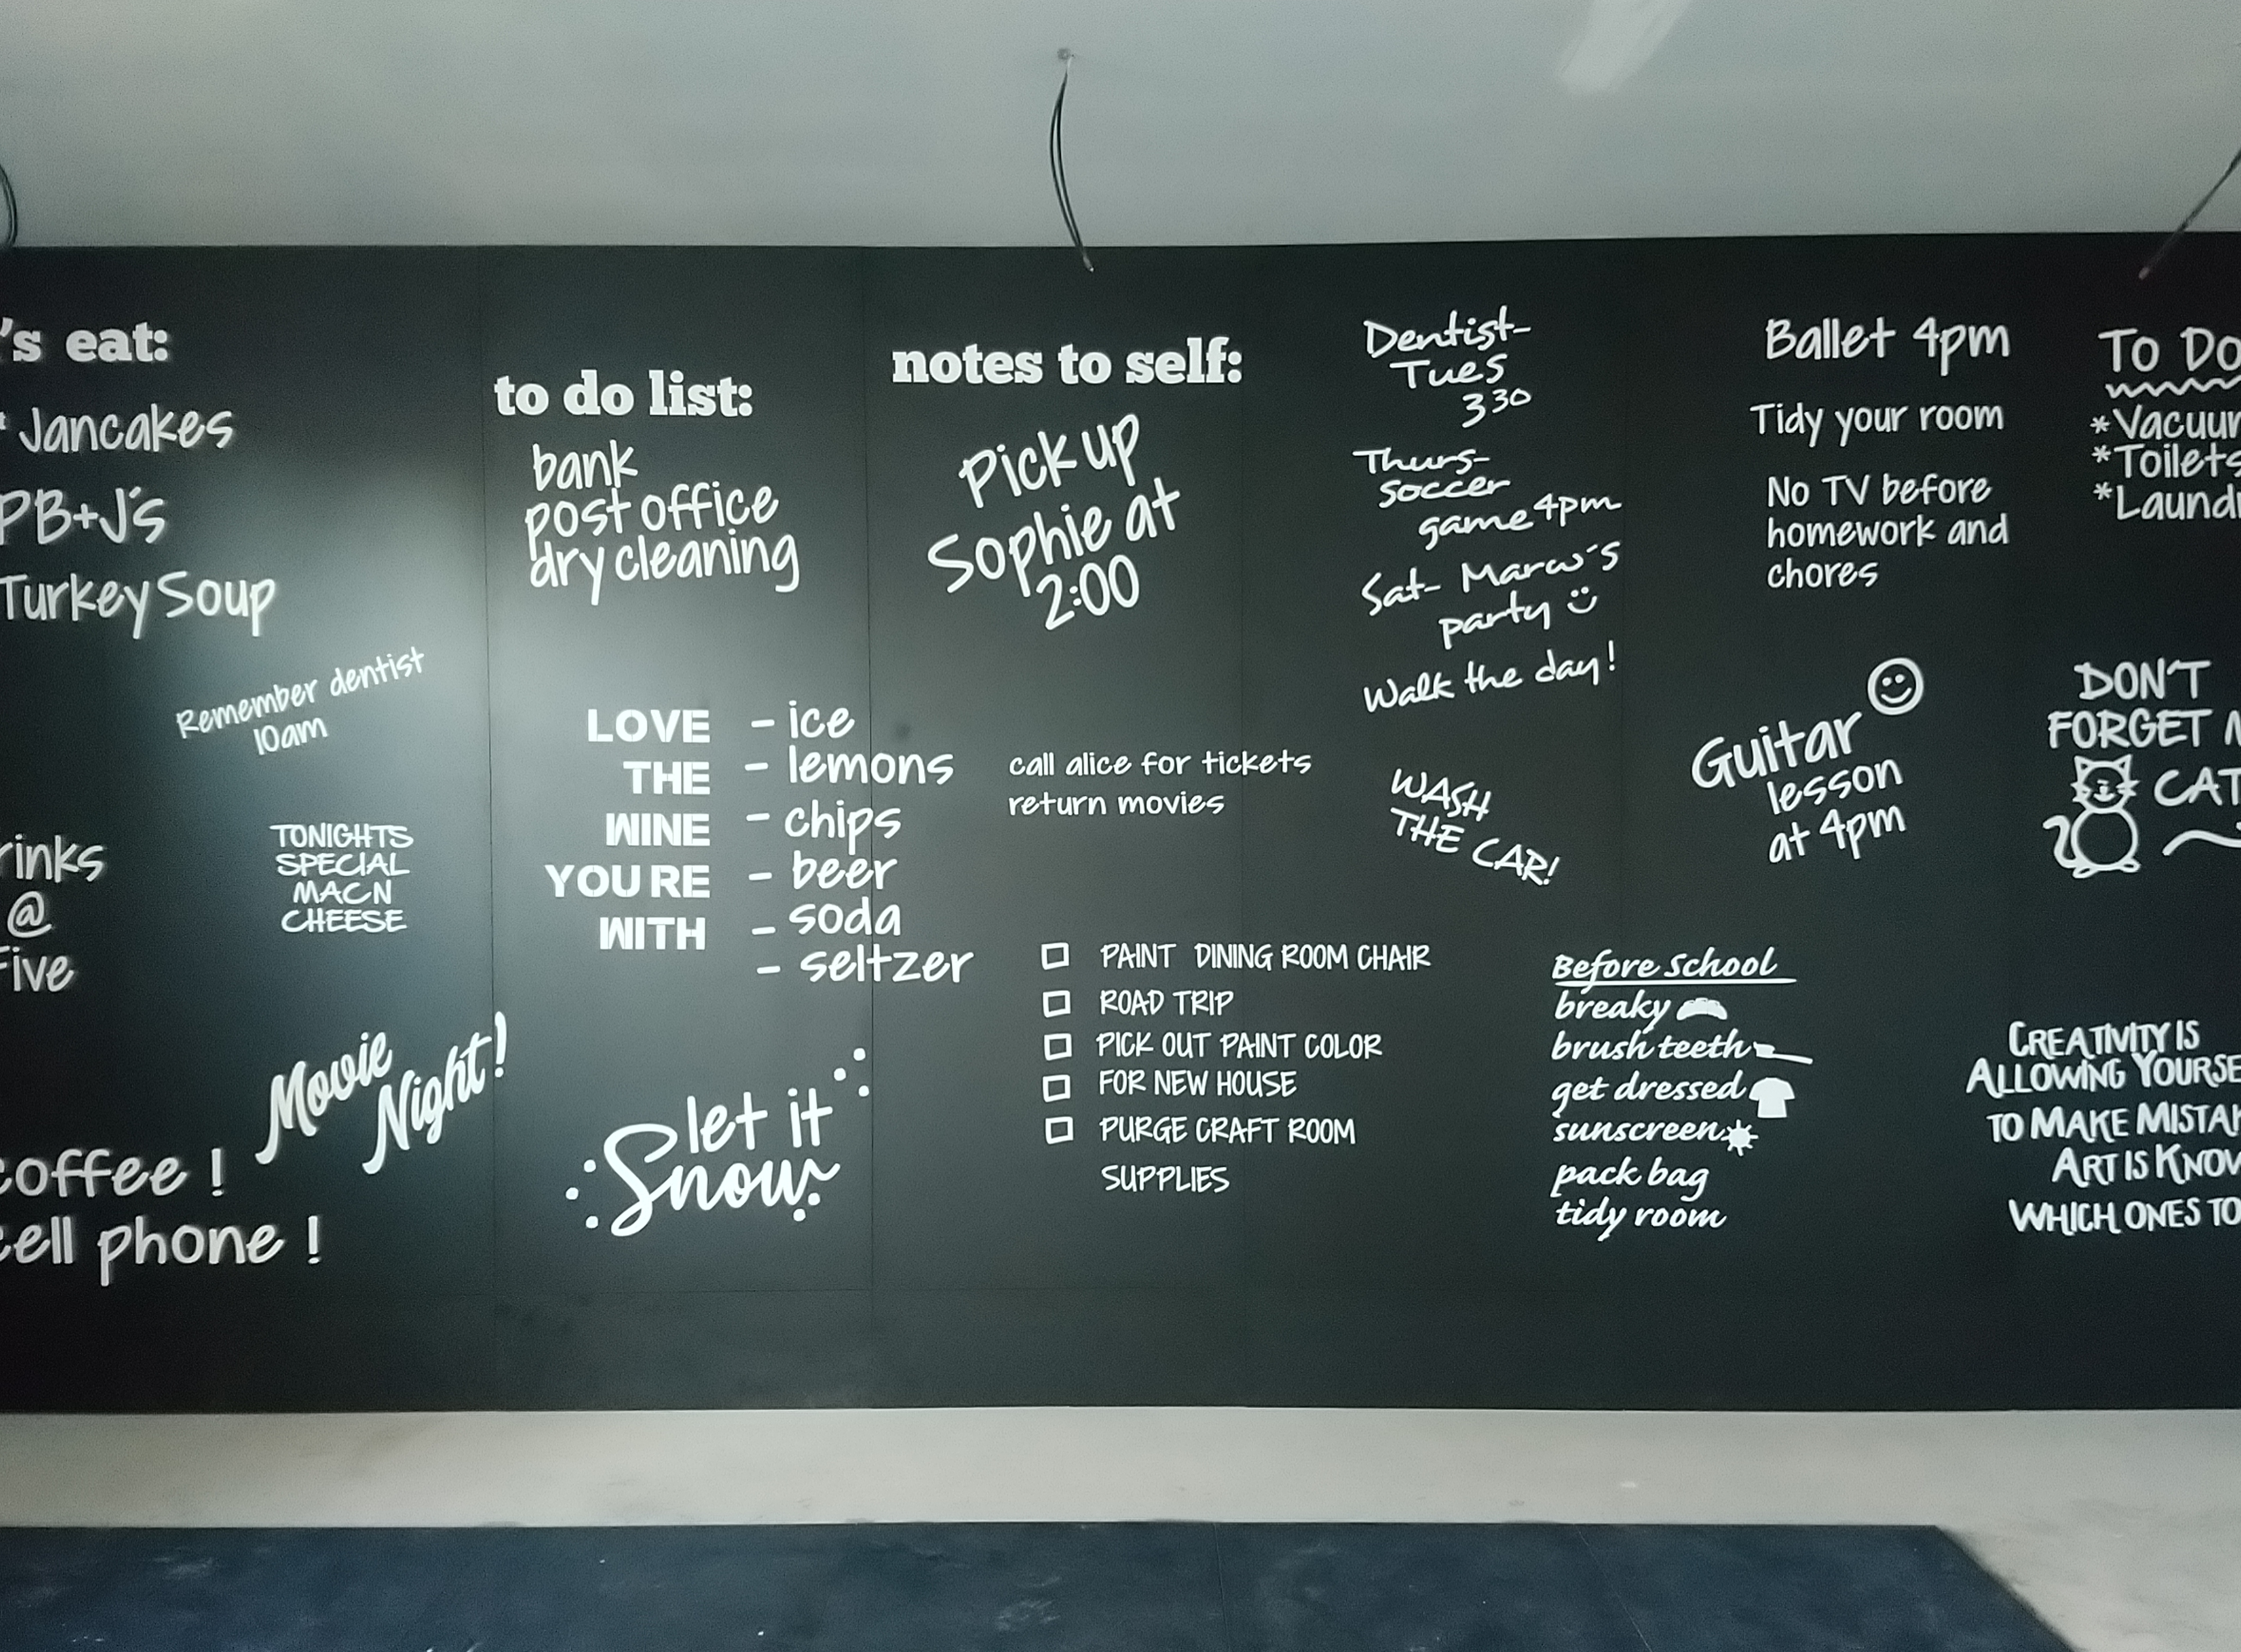 's eat:
* Jancakes
PB+J's
Turkey Soup
Remember dentist
10am
TONIGHTS
SPECIAL
MACN
CHEESE
rinks
@
Five
Movie
Night!
coffee !
cell phone !
to do list:
bank
post office
dry cleaning
LOVE
THE
WINE
YOU RE
WITH
- ice
- lemons
- chips
- beer
- soda
- seltzer
let it
Snow
notes to self:
Pick up
Sophie at
2:00
call alice for tickets
return movies
PAINT DINING ROOM CHAIR
ROAD TRIP
PICK OUT PAINT COLOR
FOR NEW HOUSE
PURGE CRAFT ROOM
SUPPLIES
Dentist-
Tues
330
Thurs-
soccer
game 4pm
Sat- Marcus's
party
Walk the day!
WASH
THE CAR!
Before School
breaky
brush teeth
get dressed
sunscreen
pack bag
tidy room
Ballet 4pm
Tidy your room
No TV before
homework and
chores
Guitar
lesson
at 4pm
To Do
*Vacuum
*Toilets
*Laund
DON'T
FORGET
CAT
CREATIVITY IS
ALLOWING YOURSE
TO MAKE MISTAK
ART IS KNOW
WHICH ONES TO